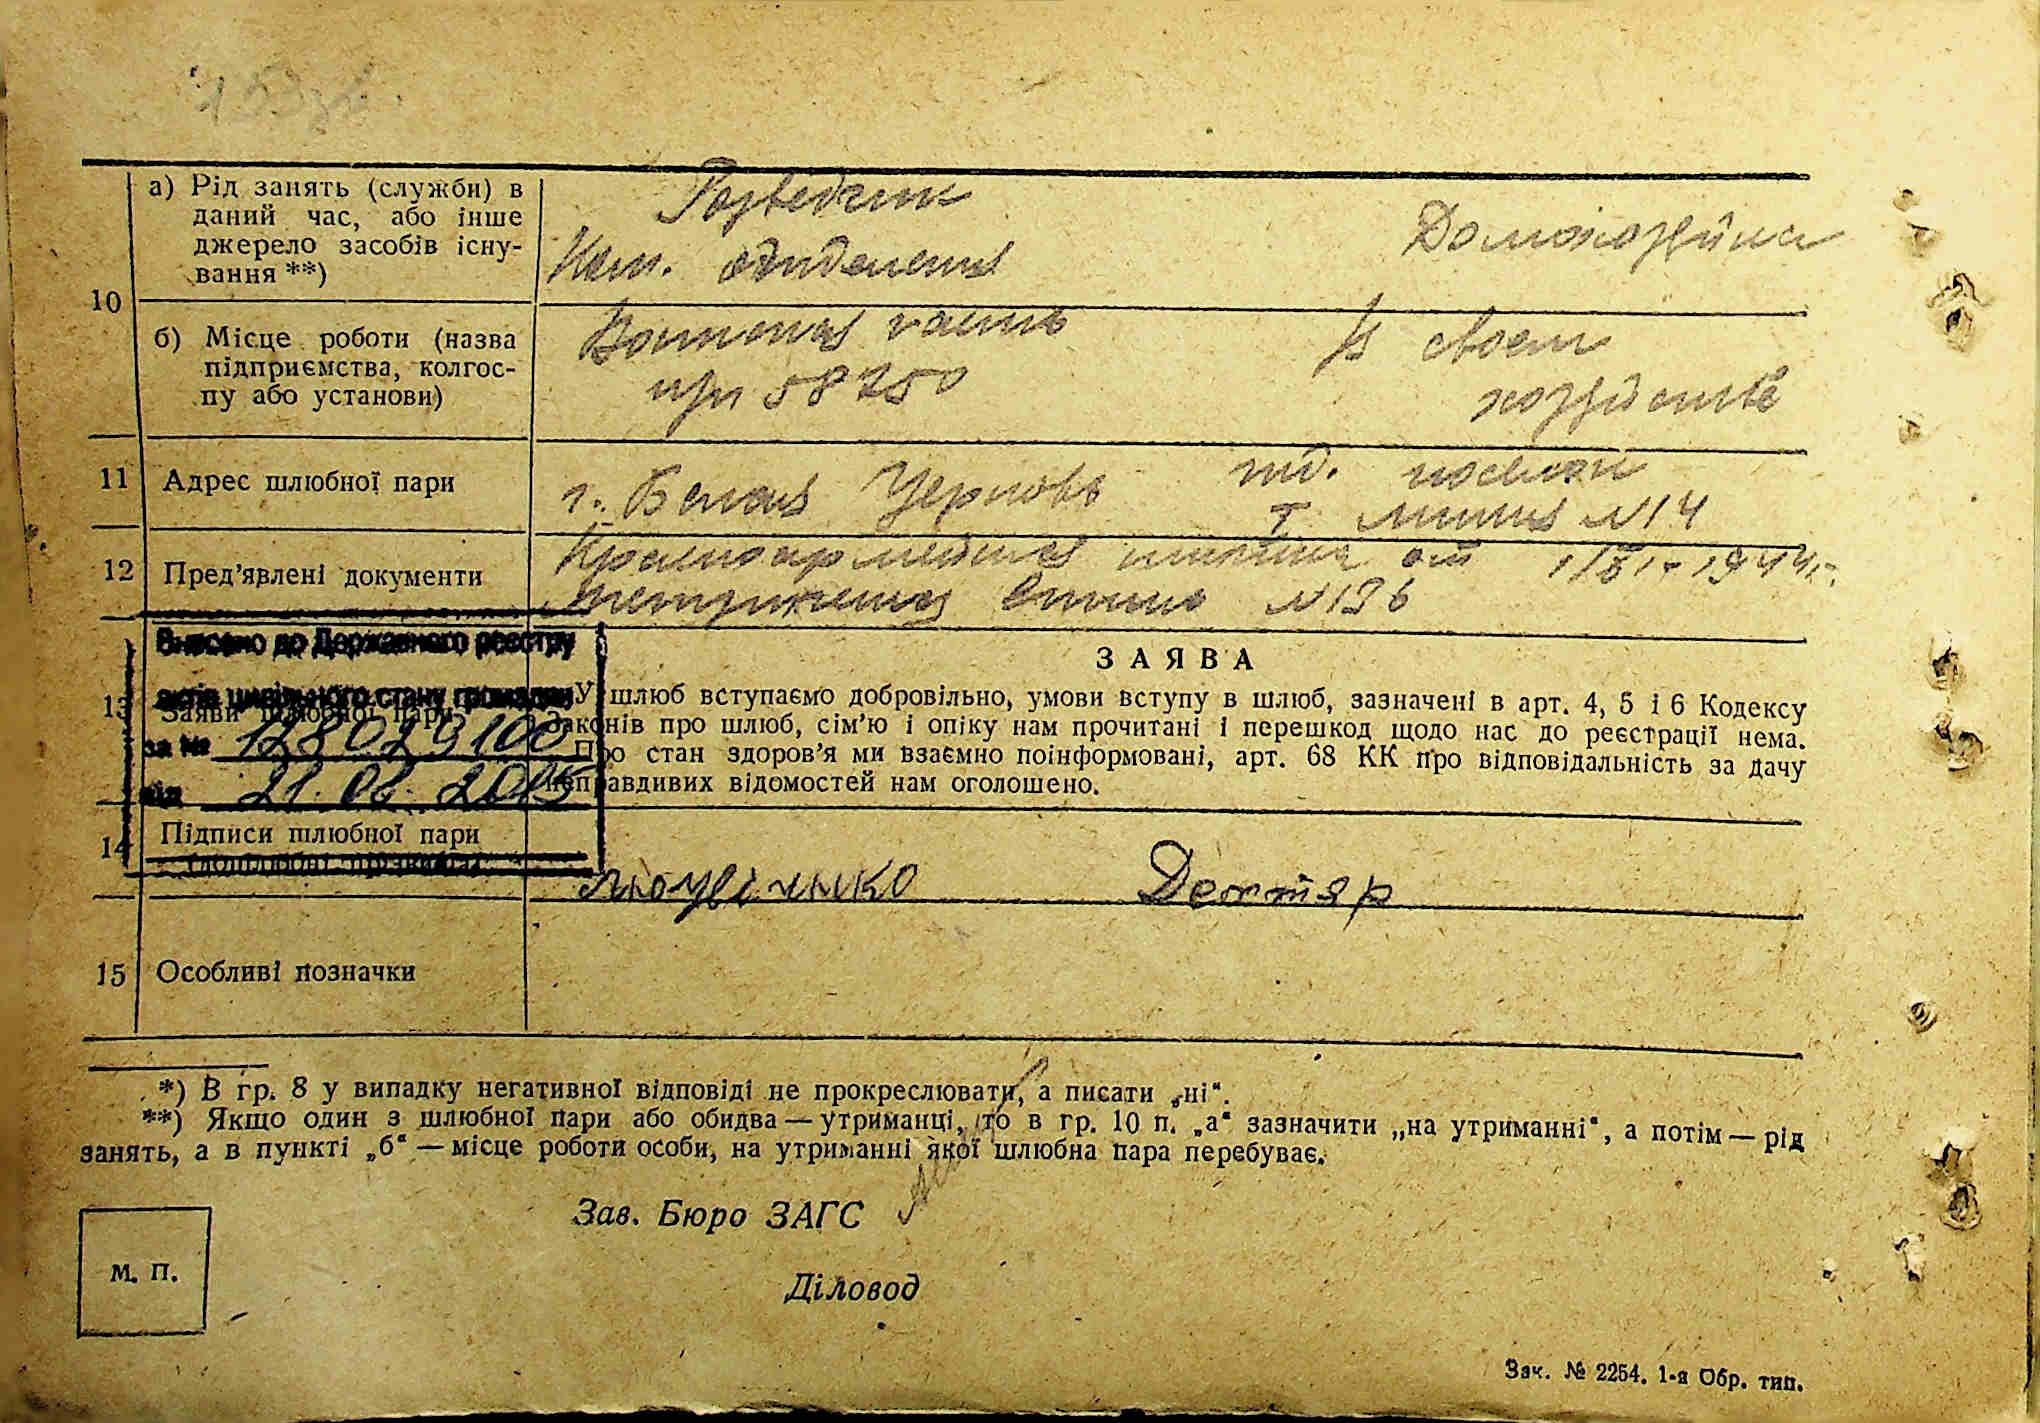 а) Рід занять (служби) в
даний час, або інше
джерело засобів існу-
вання **)
Розведчик
Ком. отделения
Домохозяйка
10
б) Місце роботи (назва
підприємства, колгос-
пу або установи)
часть
58750
В своем
хозяйстве
11
Адрес шлюбної пари
г. Белая Церковь
поселок
линия №14
12
Пред'явлені документи
Красноармейская от 1944 г.
№
Внесено до Державного реєстру
актів цивільного стану громадян
за № 128029100
від 21.06.
13
Заяви шлюбної пари
ЗАЯВА
У шлюб вступаємо добровільно, умови вступу в шлюб, зазначені в арт. 4, 5 і 6 Кодексу
законів про шлюб, сім'ю і опіку нам прочитані і перешкод щодо нас до реєстрації нема.
Про стан здоров'я ми взаємно поінформовані, арт. 68 КК про відповідальність за дачу
неправдивих відомостей нам оголошено.
14
Підписи шлюбної пари
(дошлюбні прізвища)
Дегтяр
15
Особливі позначки
*) В гр. 8 у випадку негативної відповіді не прокреслювати, а писати „ні“.
**) Якщо один з шлюбної пари або обидва — утриманці, то в гр. 10 п. „а“ зазначити „на утриманні“, а потім — рід
занять, а в пункті „б“ — місце роботи особи, на утриманні якої шлюбна пара перебуває.
Зав. Бюро ЗАГС
М. П.
Діловод
Зак. № 2254. 1-я Обр. тип.